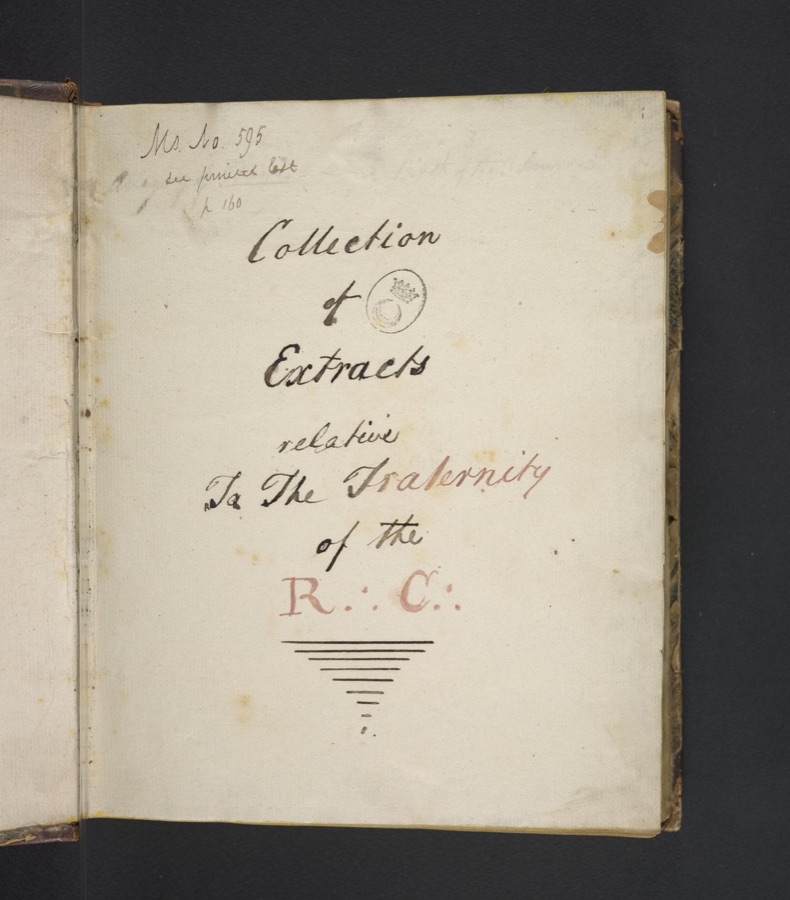 Ms. No. 595
see printed list
p 160
Collection
of
Extracts
relative
To The Fraternity
of the
R.∴ C.∴